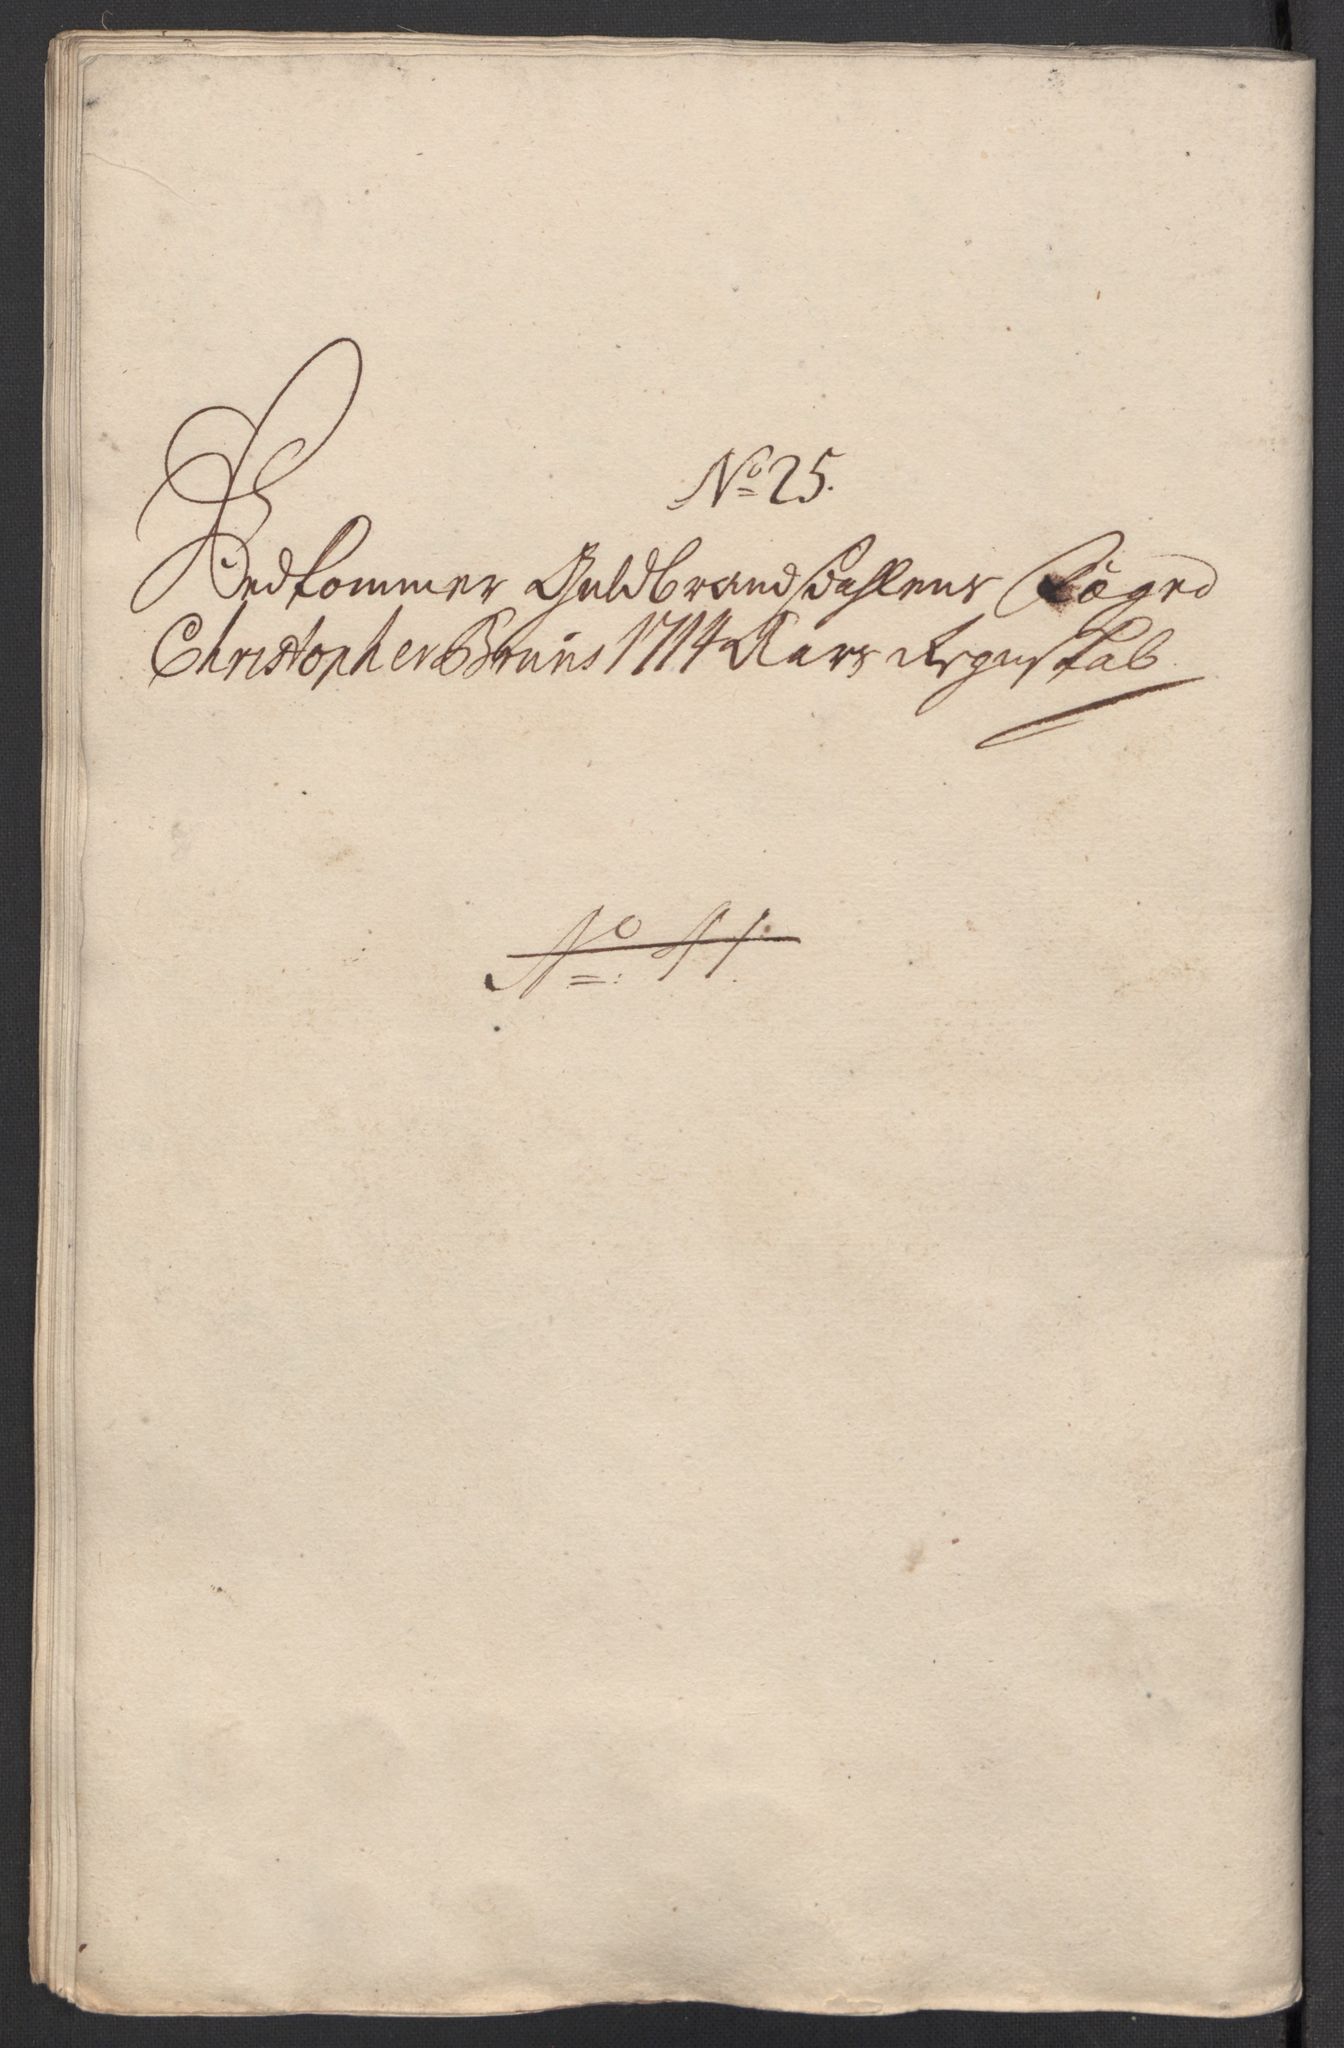 No 25.
Vedkommer Guldbrandsdahlens Foged
Christopher Bruuns 1714 Aars Regenskab
No